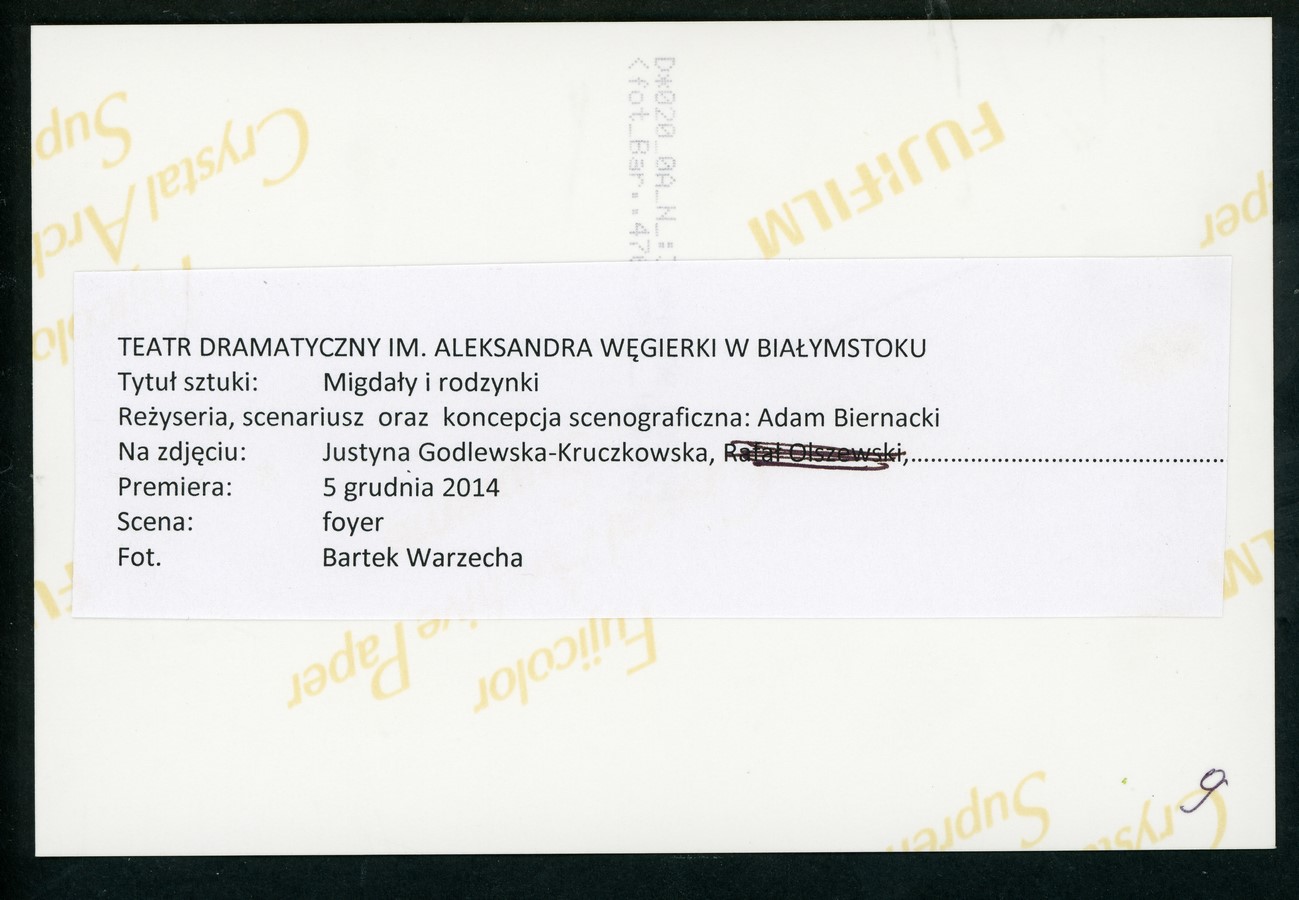 D*020_0A_N_:
<fot_Bar..476
Crystal Arch
Sup
FUJIFILM
per
TEATR DRAMATYCZNY IM. ALEKSANDRA WĘGIERKI W BIAŁYMSTOKU
Tytuł sztuki: Migdały i rodzynki
Reżyseria, scenariusz oraz koncepcja scenograficzna: Adam Biernacki
Na zdjęciu: Justyna Godlewska-Kruczkowska, Rafał Olszewski,................................................
Premiera: 5 grudnia 2014
Scena: foyer
Fot. Bartek Warzecha
Fujicolor
ive Paper
Crysta
Suprem
9